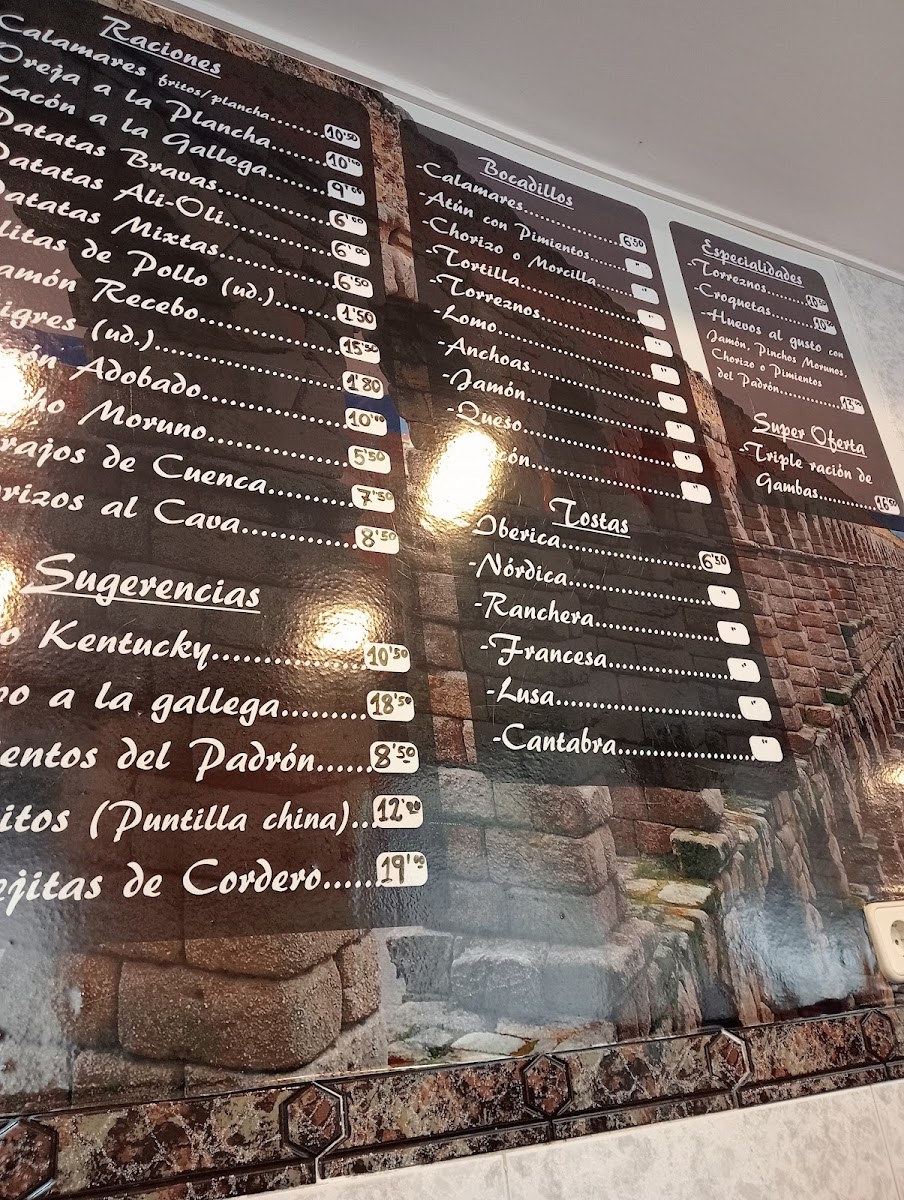 Raciones
Calamares fritos/plancha........10'50
Oreja a la Plancha........10'00
Lacón a la Gallega........9'00
Patatas Bravas........6'00
Patatas Ali-Oli........6'00
Patatas Mixtas........6'50
de Pollo (ud.)........1'50
Recebo........15'50
(ud.)........1'80
Adobado........10'00
Moruno........5'50
de Cuenca........7'50
al Cava........8'50
Sugerencias
Kentucky........10'50
a la gallega........18'50
del Padrón........8'50
(Puntilla china)........12'00
de Cordero........19'00
Bocadillos
-Calamares........6'50
-Atún con Pimientos........"
-Chorizo o Morcilla........"
-Tortilla........"
-Torreznos........"
-Lomo........"
-Anchoas........"
-Jamón........"
-Queso........"
........"
Tostas
Iberica........6'50
-Nórdica........"
-Ranchera........"
-Francesa........"
-Lusa........"
-Cantabra........"
Especialidades
-Torreznos........10'50
-Croquetas........10'00
-Huevos al gusto con
Jamón, Pinchos Morunos,
Chorizo o Pimientos
del Padrón........13'00
Super Oferta
-Triple ración de
Gambas........16'50